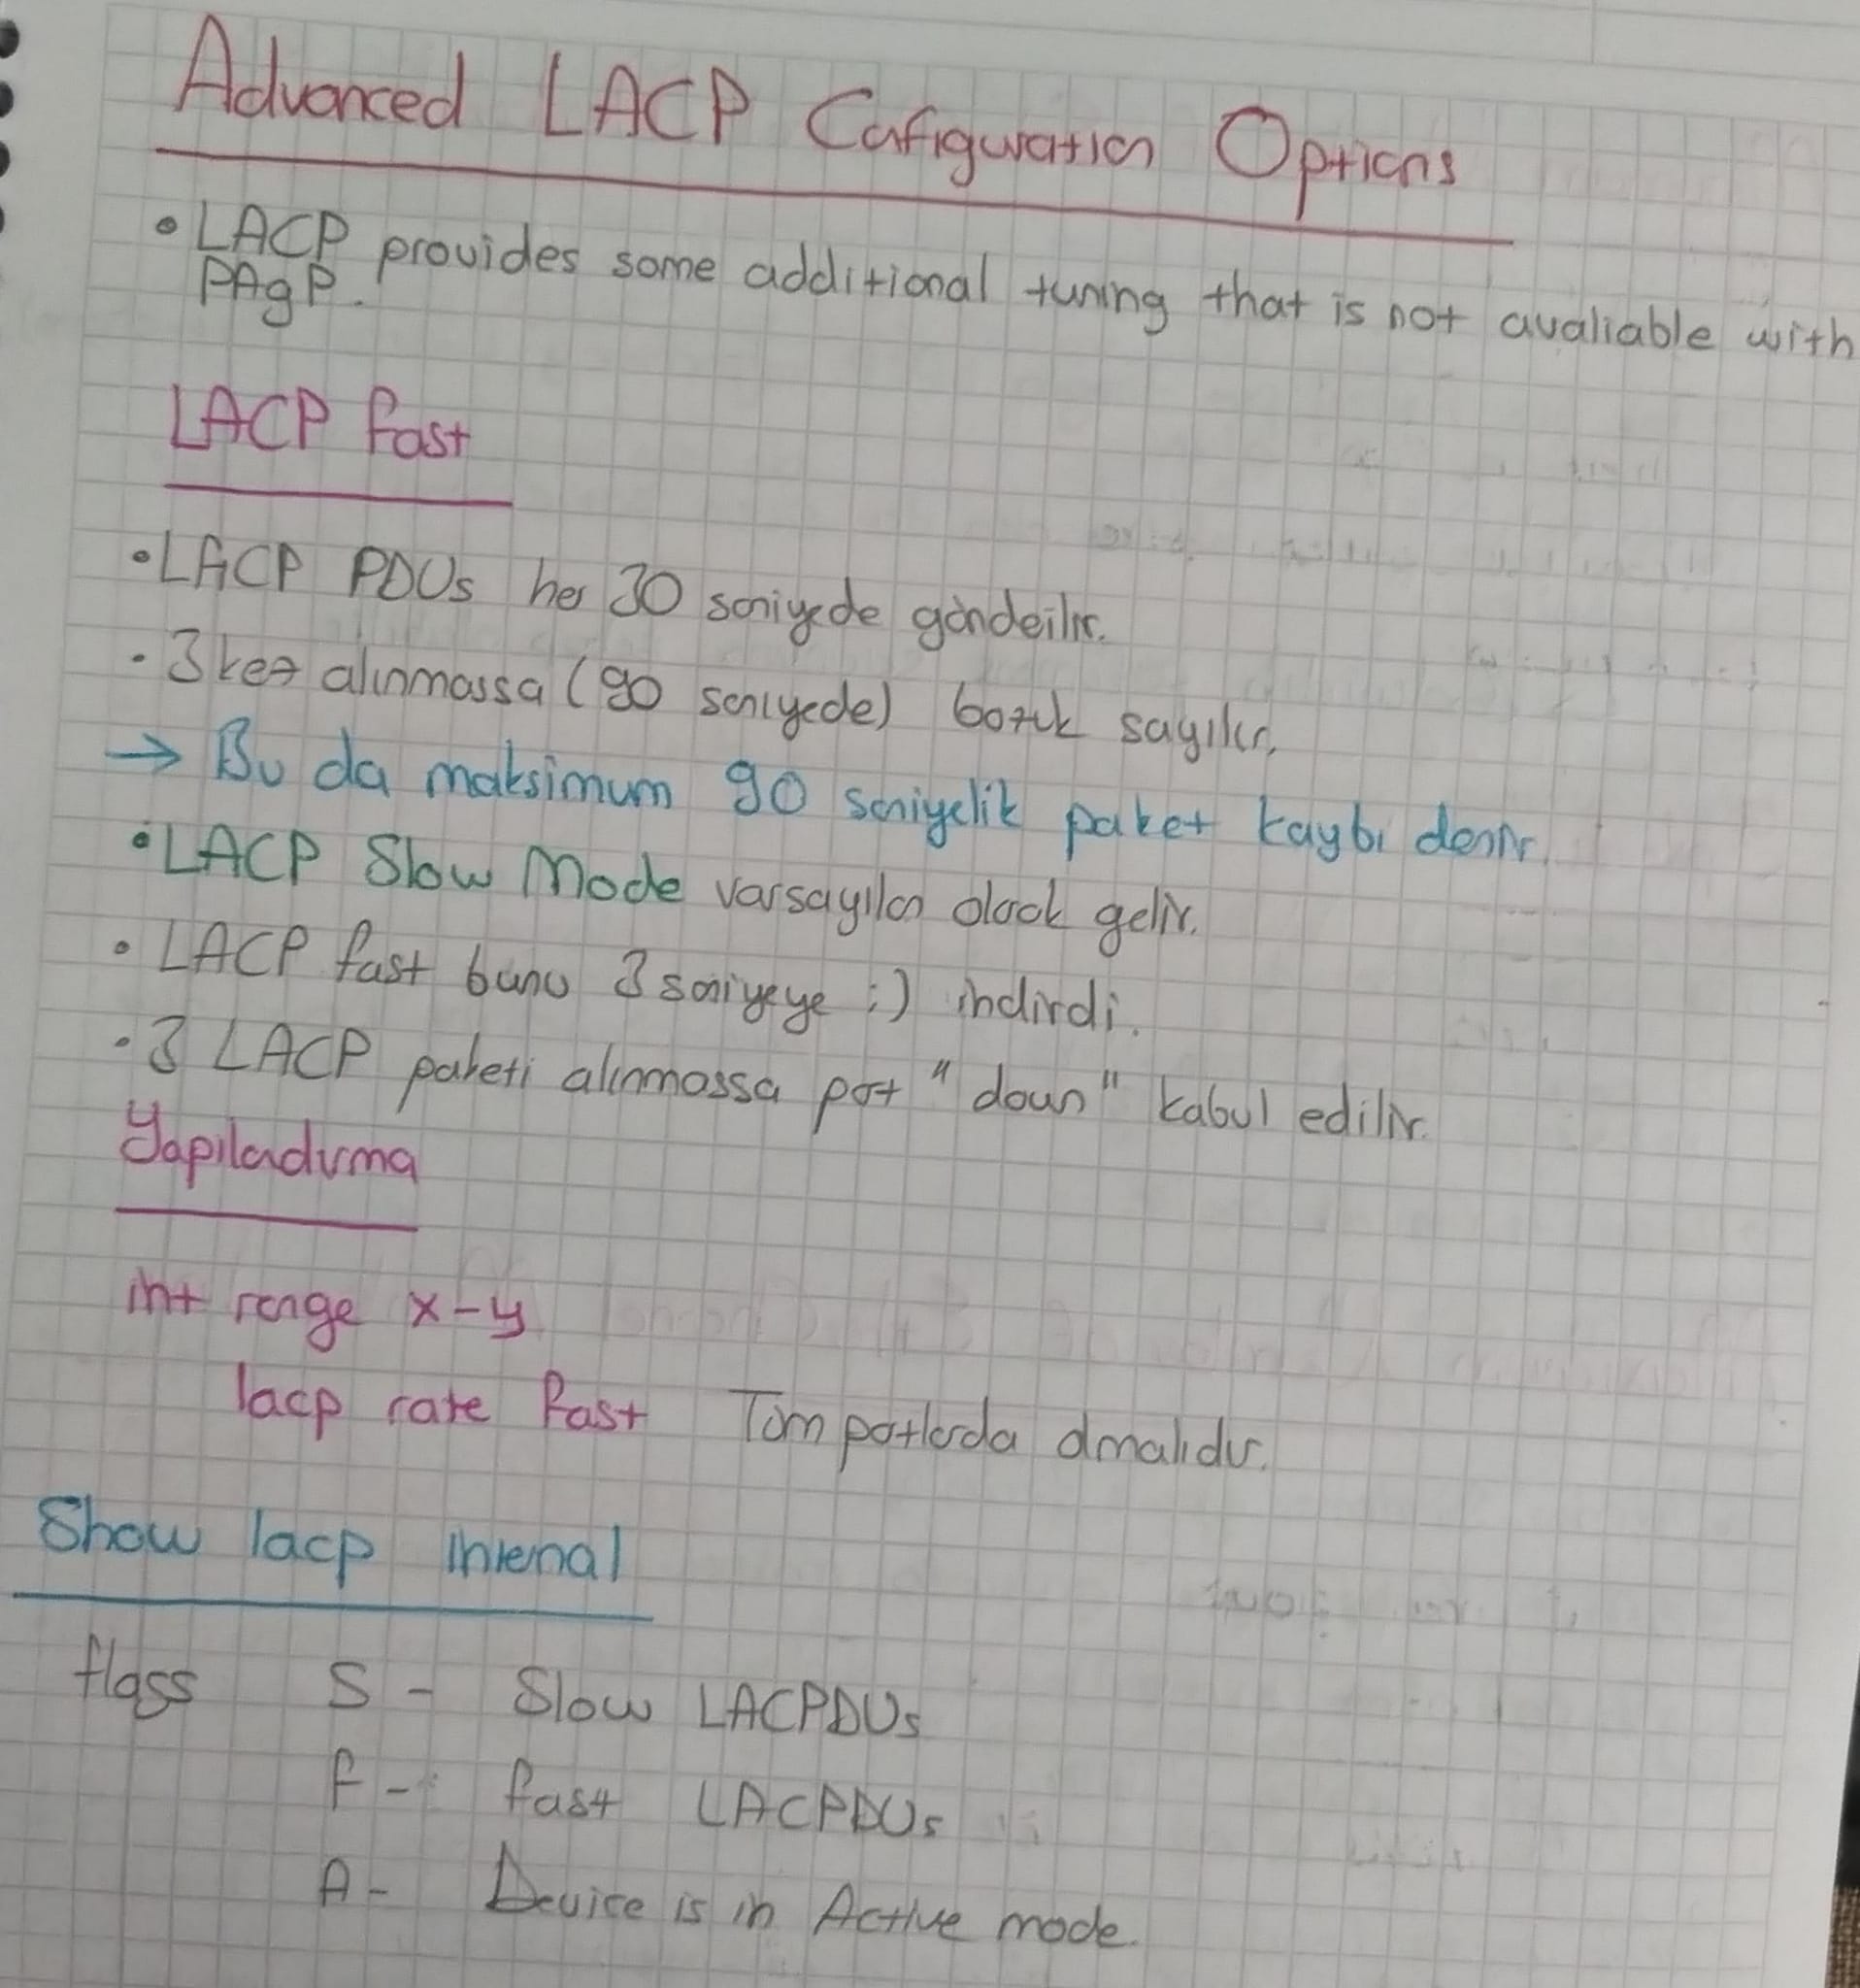 Advanced LACP Cofiguration Options
• LACP provides some additional tuning that is not avaliable with
PAgP.
LACP fast
• LACP PDUs her 30 saniyede gönderilir.
• 3 kez alınmassa (90 saniyede) bozuk sayılır.
→ Bu da maksimum 90 saniyelik paket kaybı denir.
• LACP Slow Mode varsayılan olarak gelir.
• LACP fast bunu 3 saniyeye :) indirdi.
• 3 LACP paketi alınmassa port "down" kabul edilir.
Yapılandırma
int range x-y
lacp rate fast Tüm portlarda olmalıdır.
Show lacp internal
flags S - Slow LACPDUs
F - fast LACPDUs
A - Device is in Active mode.